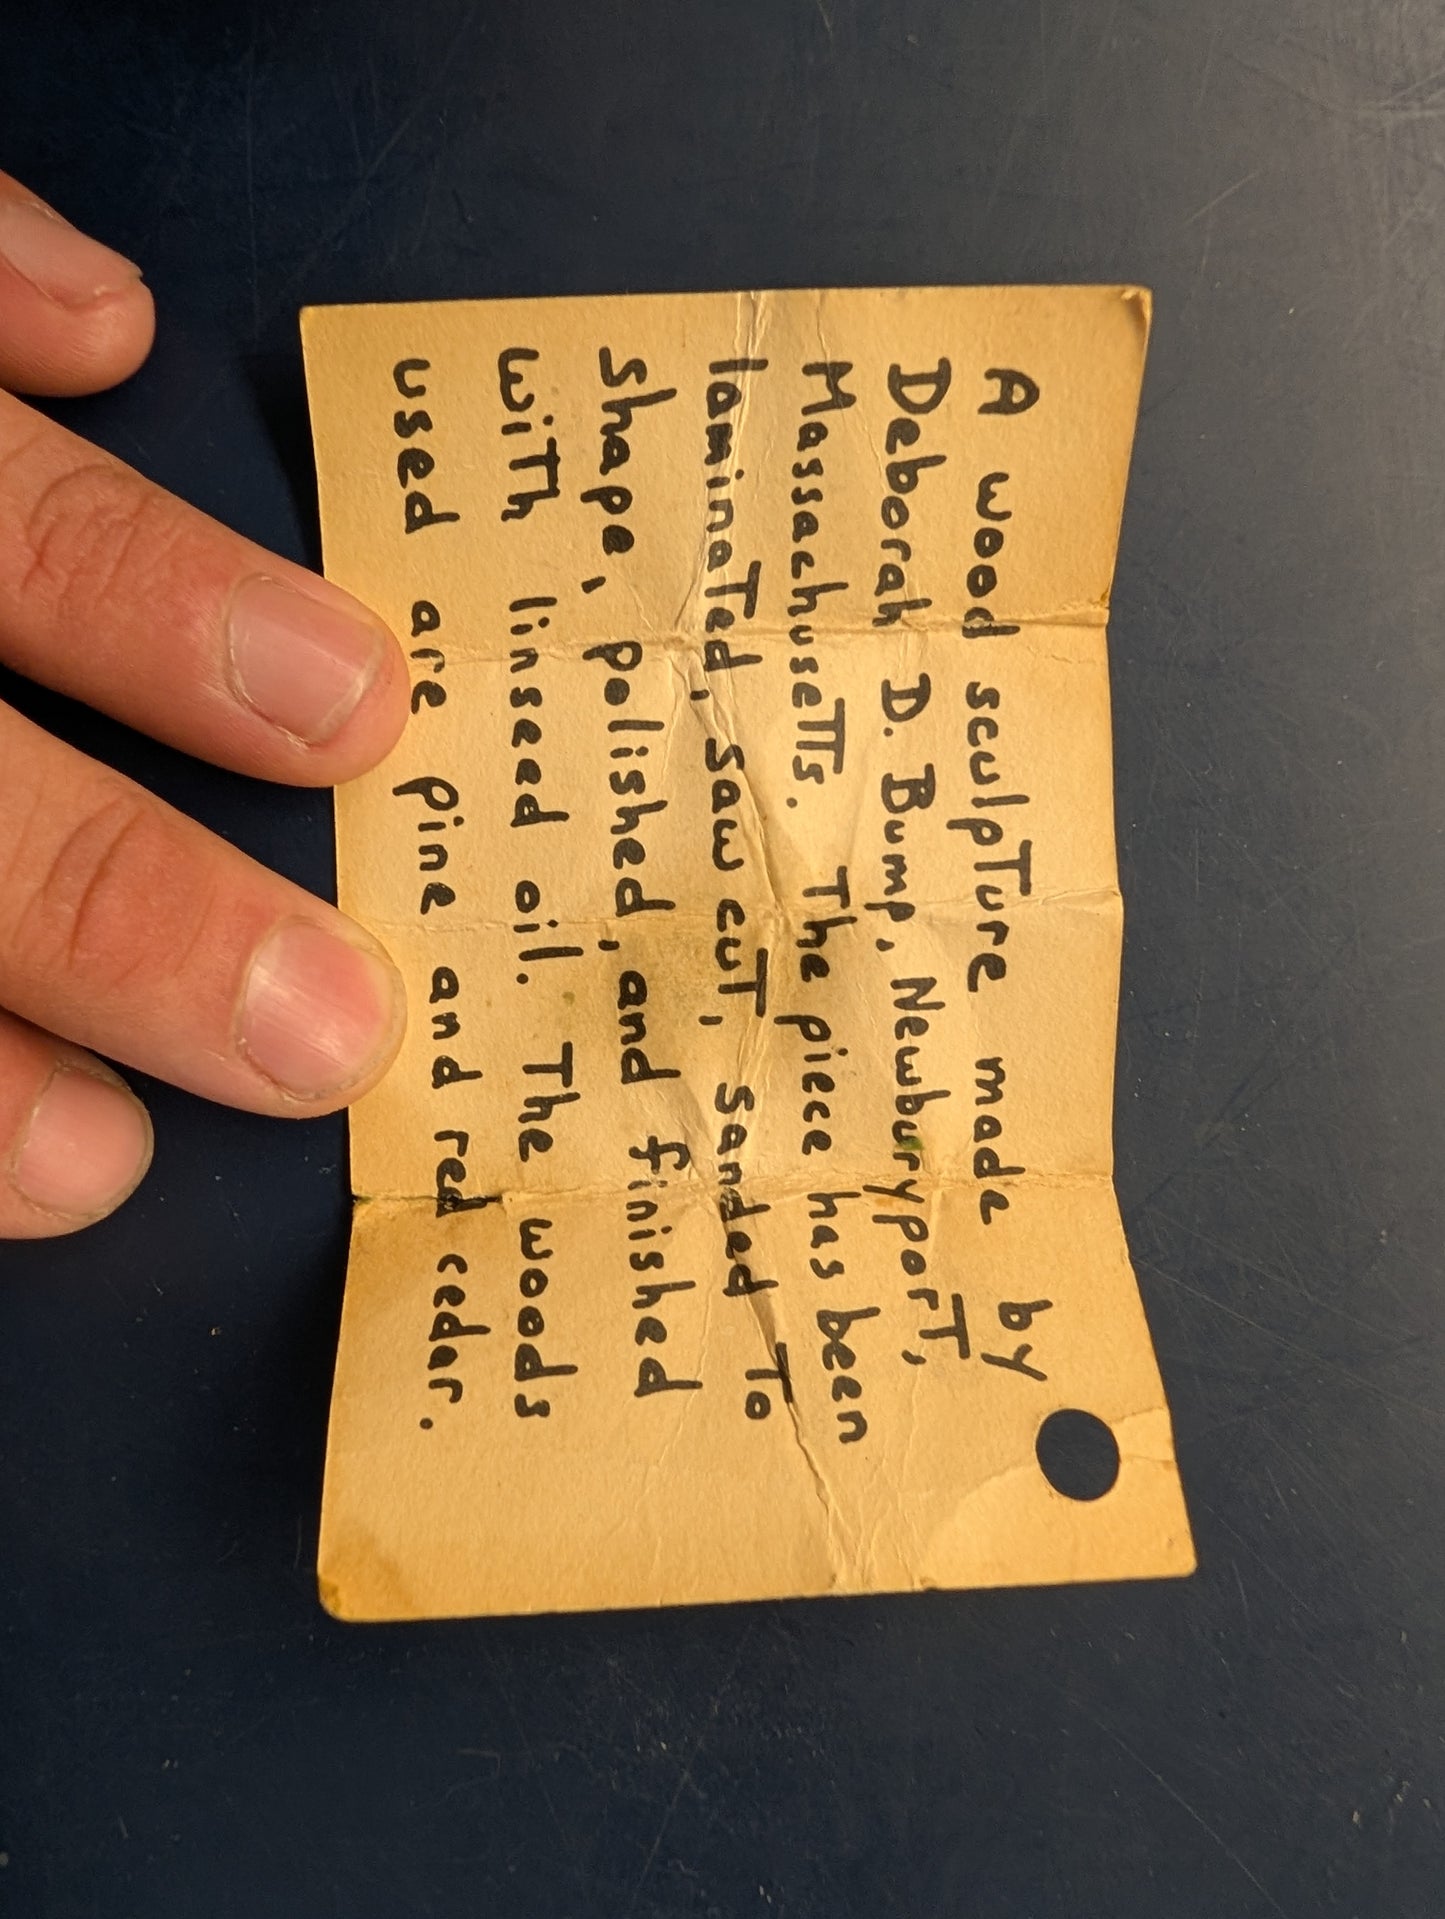 A wood sculpTure made by
Deborah D. Bump, NewburyporT,
MassachuseTTs. The piece has been
laminaTed, saw cuT, sanded To
shape, polished, and finished
wiTh linseed oil. The woods
used are pine and red cedar.